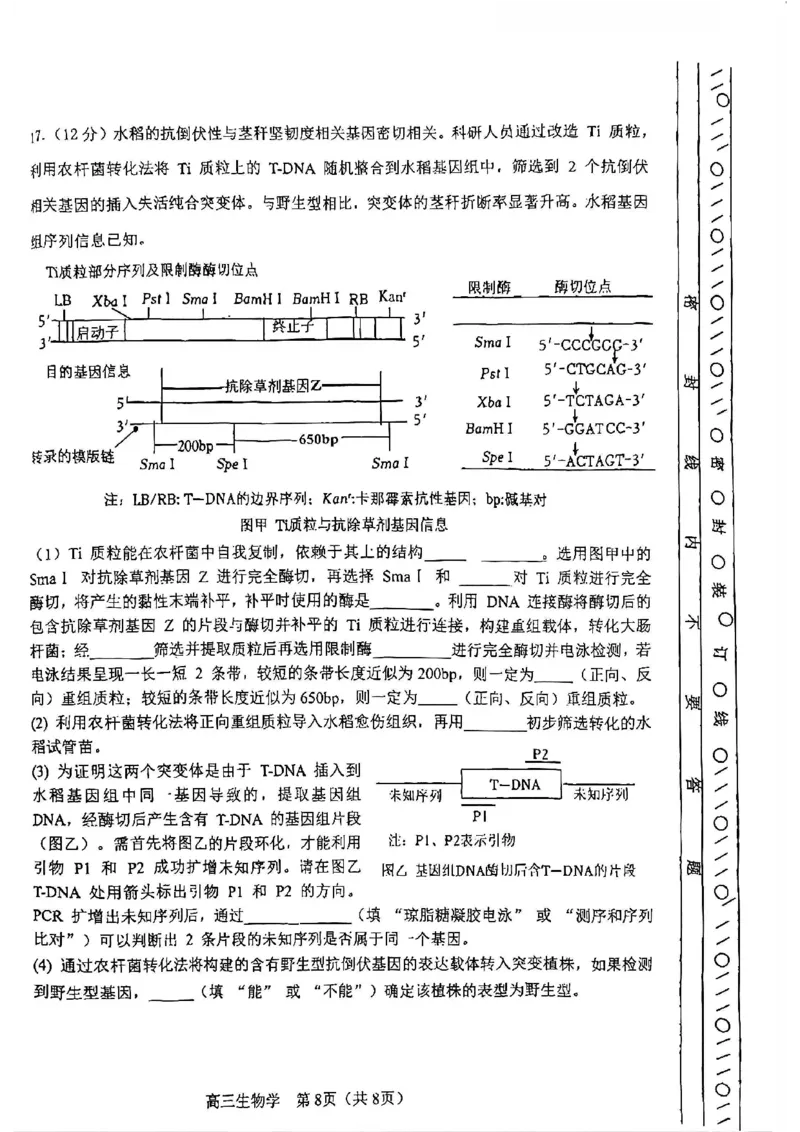 17.（12分）水稻的抗倒伏性与茎秆坚韧度相关基因密切相关。科研人员通过改造 Ti 质粒，
利用农杆菌转化法将 Ti 质粒上的 T-DNA 随机整合到水稻基因组中，筛选到 2 个抗倒伏
相关基因的插入失活纯合突变体。与野生型相比，突变体的茎秆折断率显著升高。水稻基因
组序列信息已知。
Ti质粒部分序列及限制酶酶切位点
LB XbaⅠ PstⅠ SmaⅠ BamHⅠ BamHⅠ RB Kanʳ
5' 启动子 终止子 3'
3' 5'
目的基因信息
抗除草剂基因Z
5' 3'
3' 5'
转录的模版链
200bp 650bp
SmaⅠ SpeⅠ SmaⅠ
限制酶 酶切位点
SmaⅠ 5'-CCCGGG-3'
PstⅠ 5'-CTGCAG-3'
XbaⅠ 5'-TCTAGA-3'
BamHⅠ 5'-GGATCC-3'
SpeⅠ 5'-ACTAGT-3'
注：LB/RB: T-DNA的边界序列；Kanʳ:卡那霉素抗性基因；bp:碱基对
图甲 Ti质粒与抗除草剂基因信息
（1）Ti 质粒能在农杆菌中自我复制，依赖于其上的结构____ ____。选用图甲中的
SmaⅠ 对抗除草剂基因 Z 进行完全酶切，再选择 SmaⅠ 和 ____对 Ti 质粒进行完全
酶切，将产生的黏性末端补平，补平时使用的酶是____。利用 DNA 连接酶将酶切后的
包含抗除草剂基因 Z 的片段与酶切并补平的 Ti 质粒进行连接，构建重组载体，转化大肠
杆菌；经____筛选并提取质粒后再选用限制酶____进行完全酶切并电泳检测，若
电泳结果呈现一长一短 2 条带，较短的条带长度近似为200bp，则一定为____（正向、反
向）重组质粒；较短的条带长度近似为650bp，则一定为____（正向、反向）重组质粒。
(2) 利用农杆菌转化法将正向重组质粒导入水稻愈伤组织，再用____初步筛选转化的水
稻试管苗。
(3) 为证明这两个突变体是由于 T-DNA 插入到
水稻基因组中同一基因导致的，提取基因组
DNA，经酶切后产生含有 T-DNA 的基因组片段
（图乙）。需首先将图乙的片段环化，才能利用
引物 P1 和 P2 成功扩增未知序列。请在图乙
T-DNA 处用箭头标出引物 P1 和 P2 的方向。
P2
未知序列 T-DNA 未知序列
P1
注：P1、P2表示引物
图乙 基因组DNA酶切后含T-DNA的片段
PCR 扩增出未知序列后，通过____ ____（填“琼脂糖凝胶电泳”或“测序和序列
比对”）可以判断出 2 条片段的未知序列是否属于同一个基因。
(4) 通过农杆菌转化法将构建的含有野生型抗倒伏基因的表达载体转入突变植株，如果检测
到野生型基因，____（填“能”或“不能”）确定该植株的表型为野生型。
高三生物学 第8页（共8页）
密封线内不要答题
密封装订线